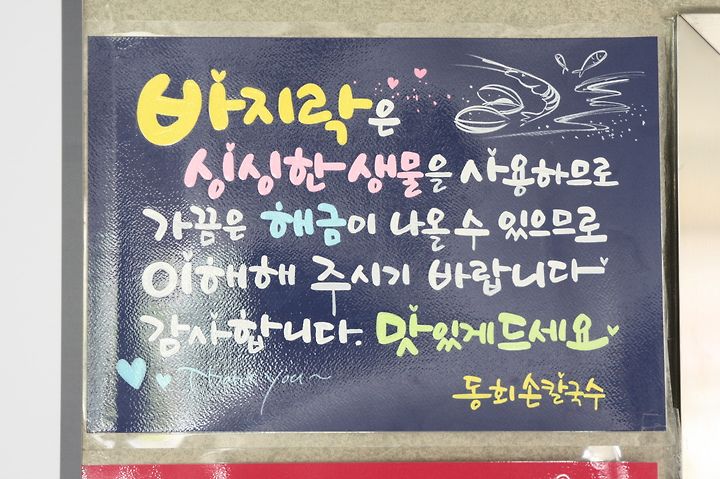 바지락은
싱싱한 생물을 사용하므로
가끔은 해금이 나올 수 있으므로
이해해 주시기 바랍니다
감사합니다. 맛있게드세요
Thank you~
동회손칼국수